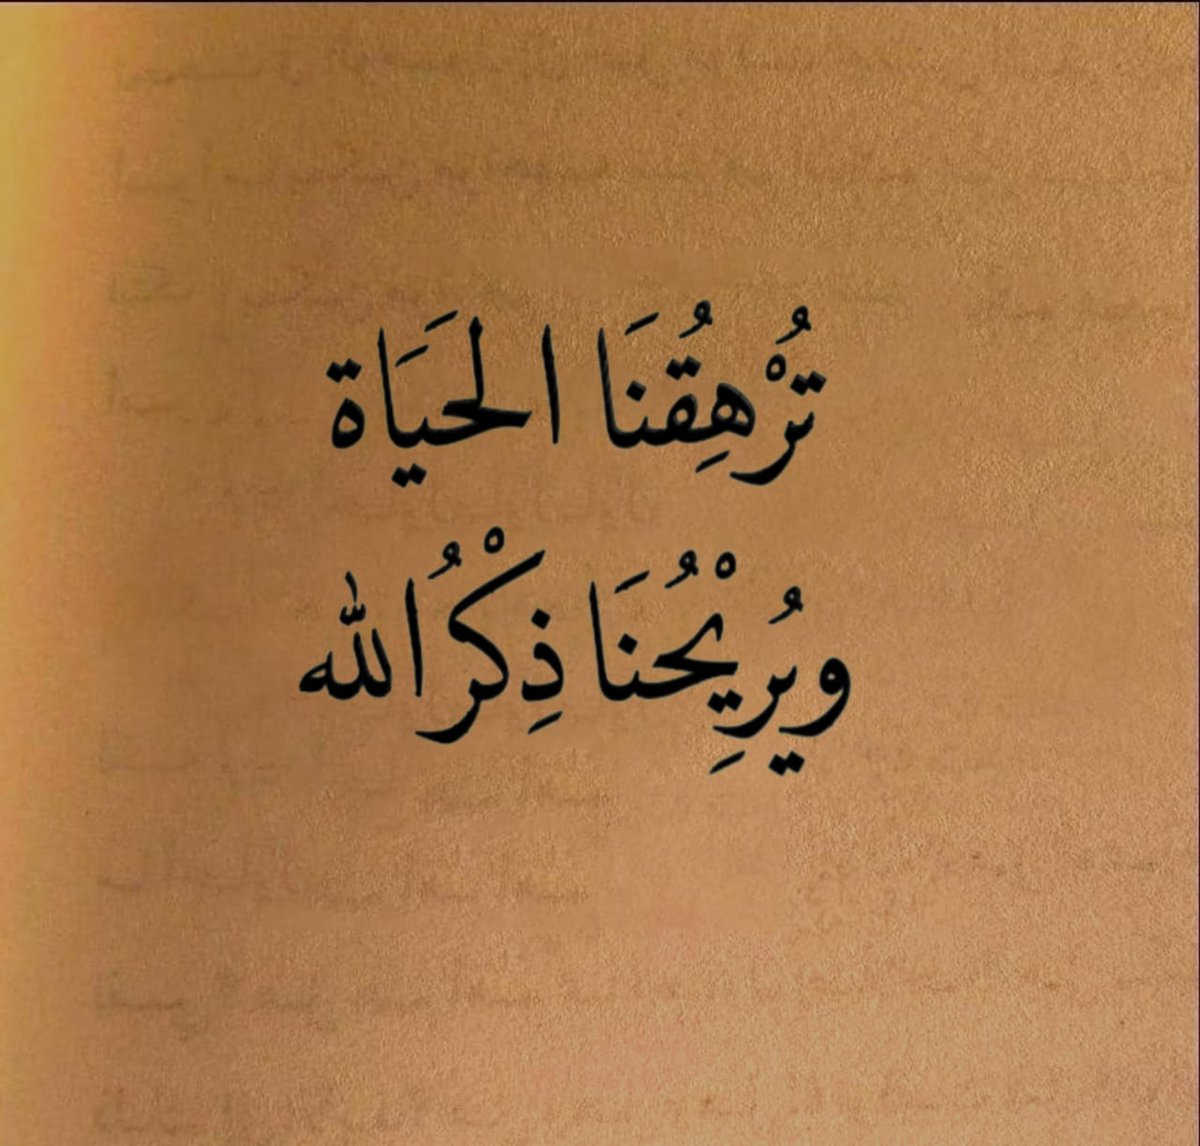 تُرْهِقُنَا الحَيَاة
ويُرِيْحُنَا ذِكْرُ الله